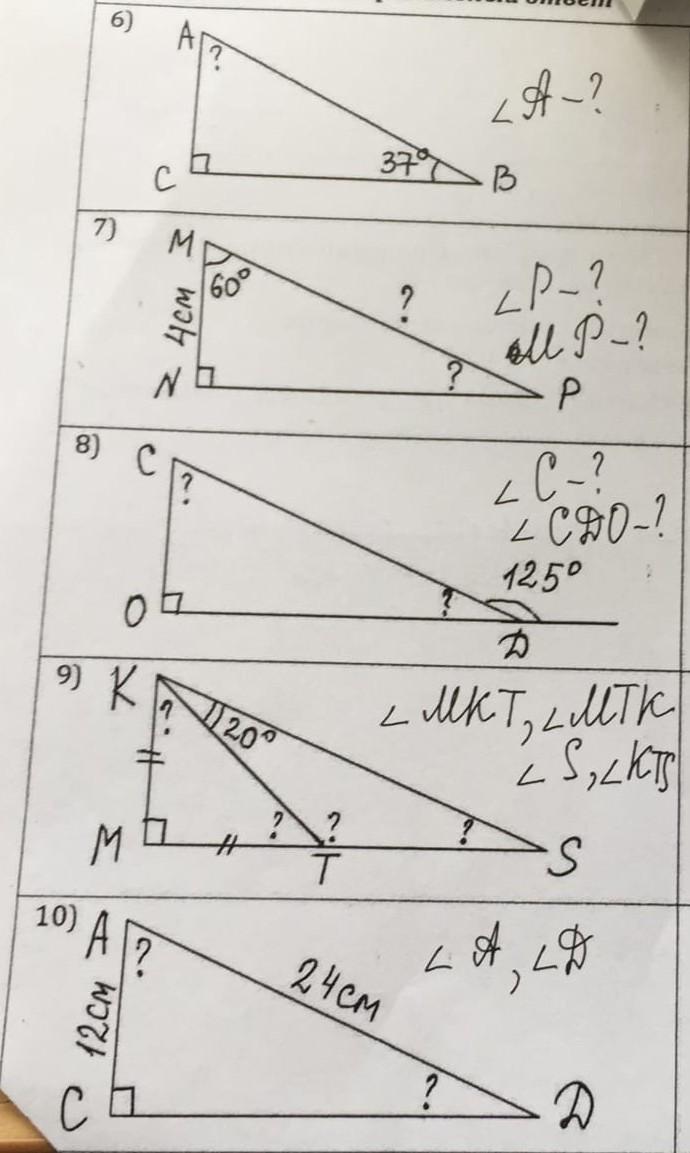 ответ
6)
A
?
∠A-?
37°
C
B
7)
M
60°
4см
?
∠P-?
MP-?
N
?
P
8)
C
?
∠C-?
∠CDO-?
125°
O
?
D
9)
K
?
20°
∠MKT, ∠MTK
∠S, ∠KTS
M
?
?
?
T
S
10)
A
?
24см
∠A, ∠D
12см
C
?
D